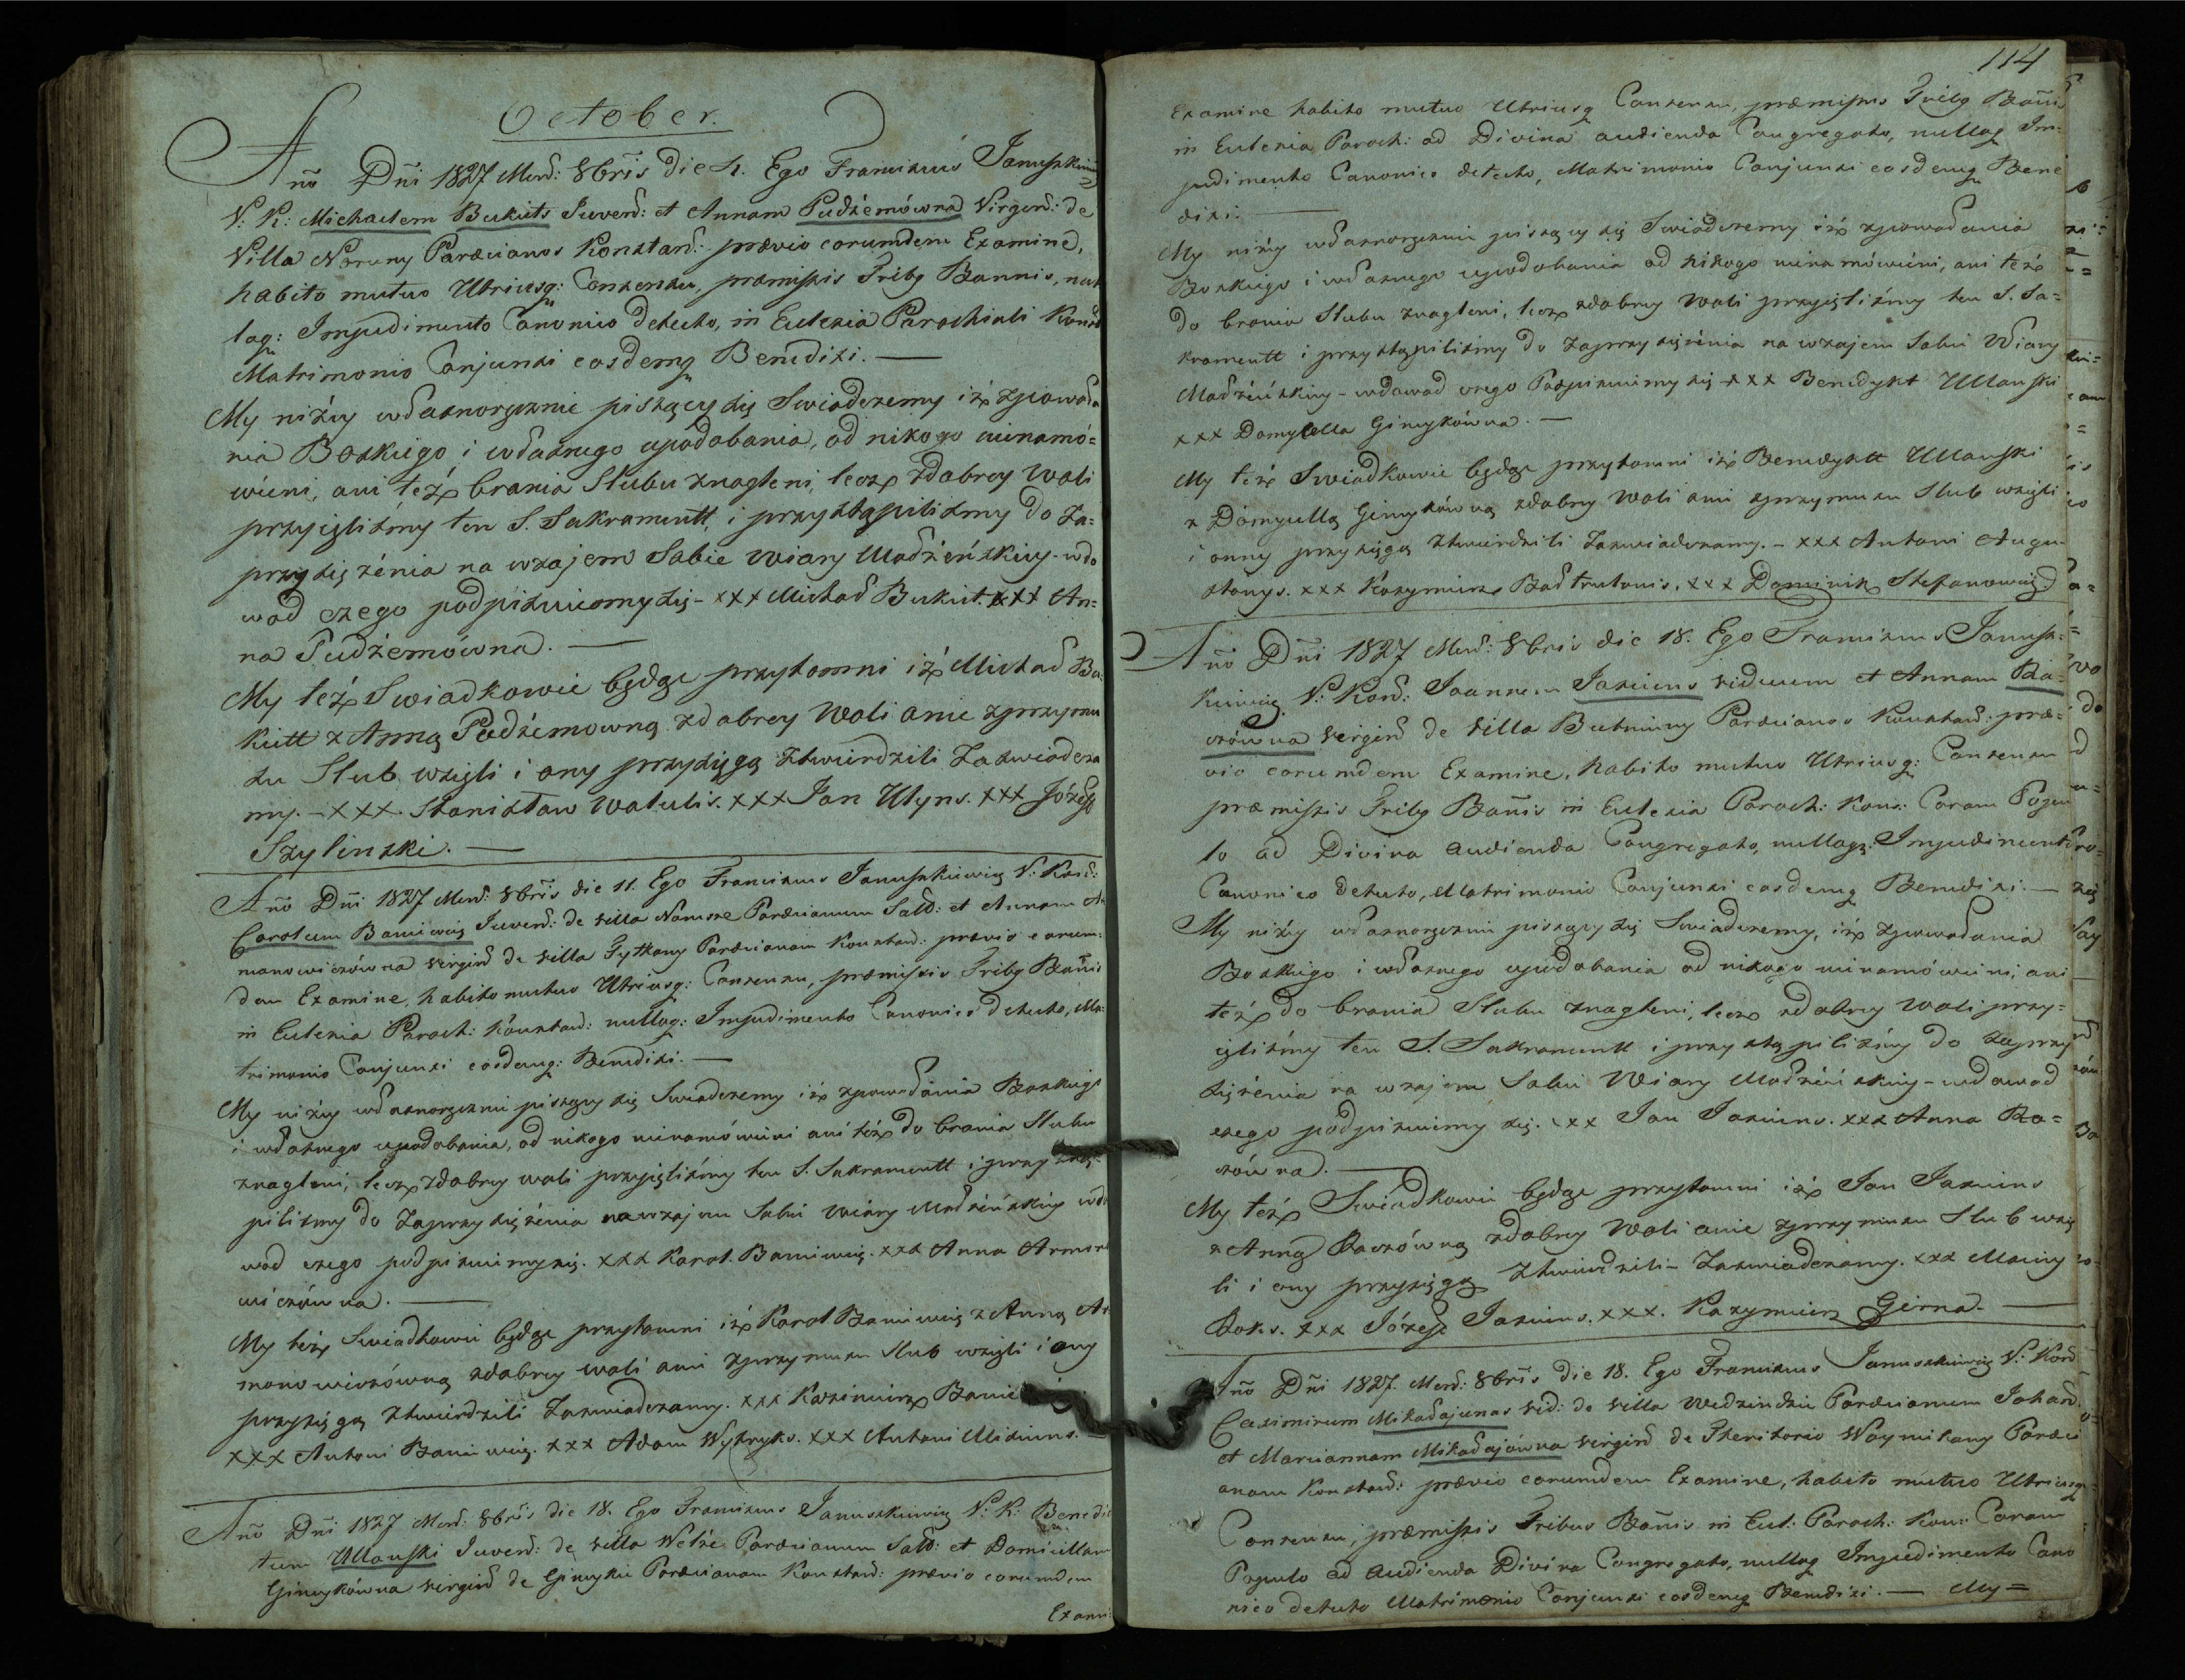 October.
Año Dñi 1827 Mens: 8bris die 4. Ego Franciscus Januszkiewicz
V: K: Michaelem Bukuts Juven: et Annam Pudźemówna Virgin: de
Villa Noruny Parœcianos Konstan: prævio eorumdem Examine,
habito mutuo Utriusq: Consensu, præmissis Tribg Bannis, nul
laq: Impedimento Canonico detecto, in Eclesia Parochiali Konst
Matrimonio Conjunxi eosdemq Benedixi. —
My niżey własnoręcznie piszący się Swiadczemy iż zpowoda
nia Boskiego i własnego upodobania, od nikogo nienamó=
wieni, ani też brania Slubu znagleni, lecz zdobrey woli
przyięliśmy ten S. Sakramentt, i przystąpiliśmy do Za=
przysiężenia na wzajem Sobie Wiary Małżeńskiey - wdo
wod czego podpisuiemy się - xxx Michał Bukut. xxx An=
na Pudżemówna. —
My też Swiadkowie będąc przytomni iż Michał Bu
kutt z Anną Pudźemowną zdobrey Woli a nie zprzymu
su Slub wzięli i ony przysięgą ztwierdzili Zaswiadcza
my. - xxx. Stanisław Watulis. xxx Jan Utyns. xxx Józef
Szylinski. —
Año Dñi 1827 Mens: 8bris die 11. Ego Franciscus Januszkiewicz V: Kons:
Carolum Baniewicz Juven: de villa Namsze Parœcianum Sald: et Annam Ar
manowiczówna virgin de villa Tytkany Parœcianam Konstan: prævio eorum:
dem Examine, habito mutuo Utriusq: Consensu, præmissis Tribg Bañis
in Eclesia Paroch: Konstan: nullaq: Impedimento Canonico detecto, Ma:
trimonio Conjunxi eosdemq: Benedixi. —
My niżey własnoręcznie piszący się Swiadczemy iż zpowodania Boskiego
i własnego upodobania, od nikogo nienamówieni ani też do brania Slubu
znagleni, lecz zdobrey woli przyięliśmy ten S. Sakramentt i przystą=
piliśmy do Zaprzysiężenia na wzajem Sobie Wiary Małżeńskiey wdo
wod czego podpisuiemy się. xxx Karol Baniewicz. xxx Anna Armono
wiczówna. —
My też Swiadkowie będąc przytomni iż Karol Baniewicz z Anną Ar
monowiczówną zdobrey woli a nie zprzymusu Slub wzięli i ony
przysięgą ztwierdzili Zaswiadczamy. xxx Kazimierz Banie
xxx Antoni Baniewicz. xxx Adam Wytryks. xxx Antoni Misiuns.
Año Dñi 1827 Mens: 8bris die 18. Ego Franciscus Januszkiewicz V: K: Benedic
tum Ullouski Juven: de villa Welże Parœcianum Sald: et Domicillam
Gineykówna virgin de Gineykie Parœcianam Konstan: prævio eorumdem
Exami:
114
Examine habito mutuo Utriusq Consensu, præmissis Tribg Bañis
in Eclesia Paroch: ad Divina audienda Congregato, nullaq Im=
pedimento Canonico detecto, Matrimonio Conjunxi eosdemq Bene
dixi. —
My niżey własnoręcznie piszący się Swiadczemy iż zpowodania
Boskiego i własnego upodobania od nikogo nienamówieni, ani też
do brania Slubu znagleni, lecz zdobrey Woli przyięliśmy ten S. Sa=
kramentt i przystąpiliśmy do Zaprzysiężenia na wzajem Sobie Wiary
Małżeńskiey - wdowod czego Podpisuiemy się xxx Benedykt Ullouski
xxx Domycella Gineykówna. —
My też Swiadkowie będąc przytomni iż Benedyktt Ullouski
z Domycellą Gineykówną zdobrey Woli a nie zprzymusu Slub wzięli
i onny przysięgą ztwierdzili Zaswiadczamy. - xxx Antoni Augu
stonys. xxx Kazymierz Bałtrutonis. xxx Dominik Stefanowicz
Año Dñi 1827 Mens: 8bris die 18. Ego Franciscus Janusz=
kiewicz V: Kons: Joannem Jasiuns viduum et Annam Ba=
czówna virgin de villa Butniuny Parœcianos Konstan: præ=
vio eorumdem Examine, habito mutuo Utriusq: Consensu
præmissis Tribg Bañis in Eclesia Paroch: Kons: Coram Popu
lo ad Divina audienda Congregato, nullaq: Impedimento
Canonico detecto, Matrimonio Conjunxi eosdemq Benedixi. —
My niżey własnoręcznie piszący się Swiadczemy, iż zpowodania
Boskiego i własnego upodobania od nikogo nienamówieni, ani
też do brania Slubu znagleni, lecz zdobrey woli przy=
ięliśmy ten S. Sakramentt i przystąpiliśmy do Zaprzy
siężenia na wzajem Sobie Wiary Małżeńskiey - wdowod
czego podpisuiemy się. xxx Jan Jasiuns. xxx Anna Ba=
czówna. —
My też Swiadkowie będąc przytomni iż Jan Jasiuns
z Anną Baczówną zdobrey Woli a nie zprzymusu Slub wzię
li i ony przysięgą ztwierdzili - Zaswiadczamy. xxx Maciey
Boks. xxx Józef Jasiuns. xxx. Kazymierz Girna. —
Año Dñi 1827. Mens: 8bris die 18. Ego Franciscus Januszkiewicz V: Kons
Casimirum Mikołajunas vid: de villa Wedzindzie Parœcianum Johan:
et Mariannam Mikołajówna virgin de Theritorio Woynikany Parœci
anam Konstan: prævio eorumdem Examine, habito mutuo Utriusq
Consensu, præmissis Tribus Bañis in Ecl: Paroch: Kons: Coram
Populo ad audienda Divina Congregato, nullaq Impedimento Cano
nico detecto Matrimonio Conjunxi eosdemq Benedixi. — My=